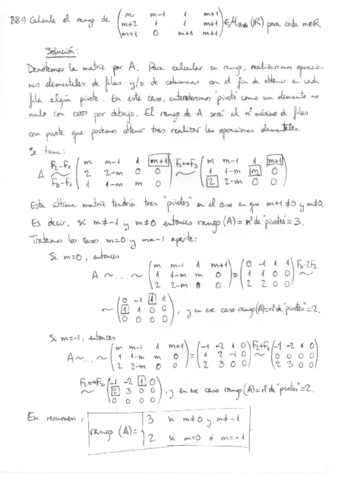 88º) Calcula el rango de (m m-1 1 m+1
m+2 1 1 m+1
m+1 0 m+1 m+1) ∈ M3x4(ℝ) para cada m∈ℝ
Solución:
Denotemos la matriz por A. Para calcular su rango, realizaremos operacio-
nes elementales de filas y/o de columnas con el fin de obtener en cada
fila algún pivote. En este caso, entenderemos "pivote" como un elemento no
nulo con ceros por debajo. El rango de A será el nº máximo de filas
con pivote que podamos obtener tras realizar las operaciones elementales.
Se tiene:
A F2-F1 F3-F1 ~ (m m-1 1 m+1
2 2-m 0 0
1 1-m m 0) F2↔F3 ~ (m m-1 1 m+1
1 1-m m 0
2 2-m 0 0)
Esta última matriz tendría tres "pivotes" en el caso en que m+1≠0 y m≠0.
Es decir, si m≠-1 y m≠0 entonces rango(A)=nº de "pivotes"=3.
Tratemos los casos m=0 y m=-1 aparte:
Si m=0, entonces
A ~ ... ~ (m m-1 1 m+1
1 1-m m 0
2 2-m 0 0) = (0 -1 1 1
1 1 0 0
2 2 0 0) F3-2F2 ~
~ (0 -1 1 1
1 1 0 0
0 0 0 0), y en ese caso rango(A)=nº de "pivotes"=2.
Si m=-1, entonces
A ~ ... ~ (m m-1 1 m+1
1 1-m m 0
2 2-m 0 0) = (-1 -2 1 0
1 2 -1 0
2 3 0 0) F2+F1 ~ (-1 -2 1 0
0 0 0 0
2 3 0 0)
F2↔F3 ~ (-1 -2 1 0
2 3 0 0
0 0 0 0), y en ese caso rango(A)=nº de "pivotes"=2.
En resumen, rango (A) = { 3 si m≠0 y m≠-1
2 si m=0 o m=-1